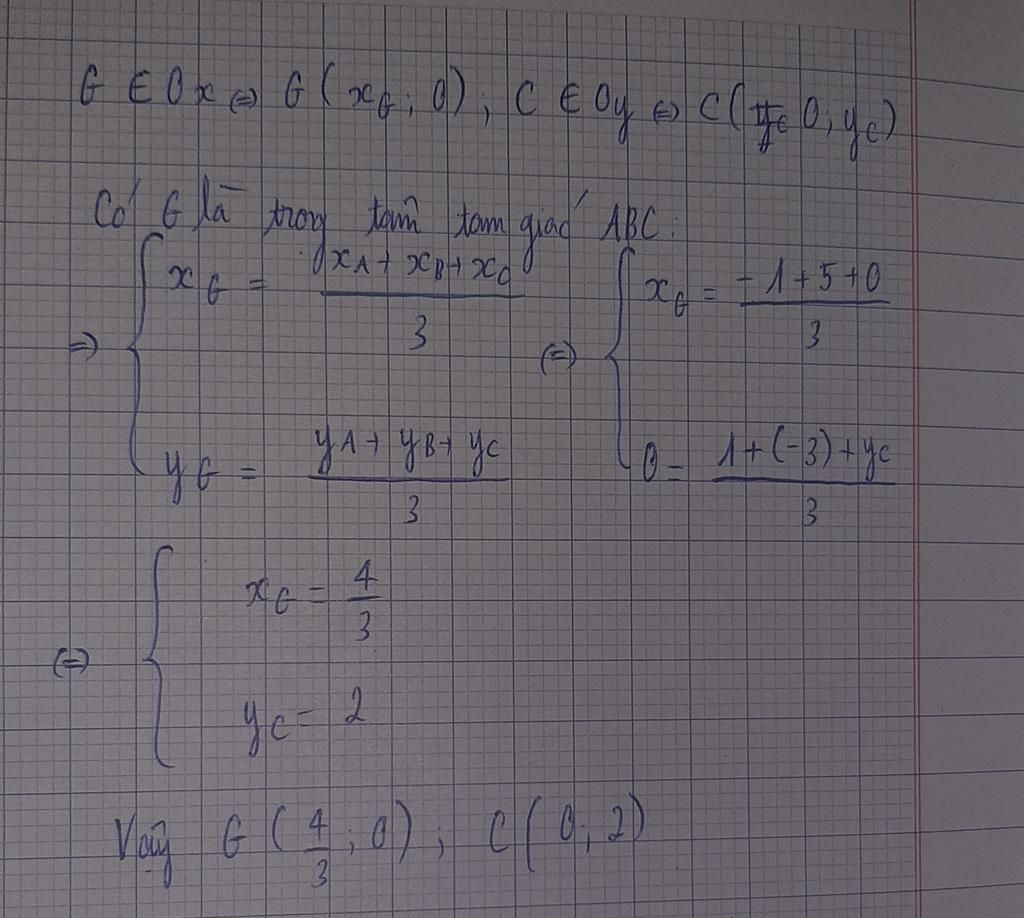 G ∈ Ox ⇔ G(x_G; 0), C ∈ Oy ⇔ C(0; y_C)
Có G là trong tâm tam giác ABC:
⇒ { x_G = (x_A + x_B + x_C)/3 (=) { x_G = (-1 + 5 + 0)/3
y_G = (y_A + y_B + y_C)/3 0 = (1 + (-3) + y_C)/3
(=) { x_G = 4/3
y_C = 2
Vậy G(4/3; 0); C(0; 2)